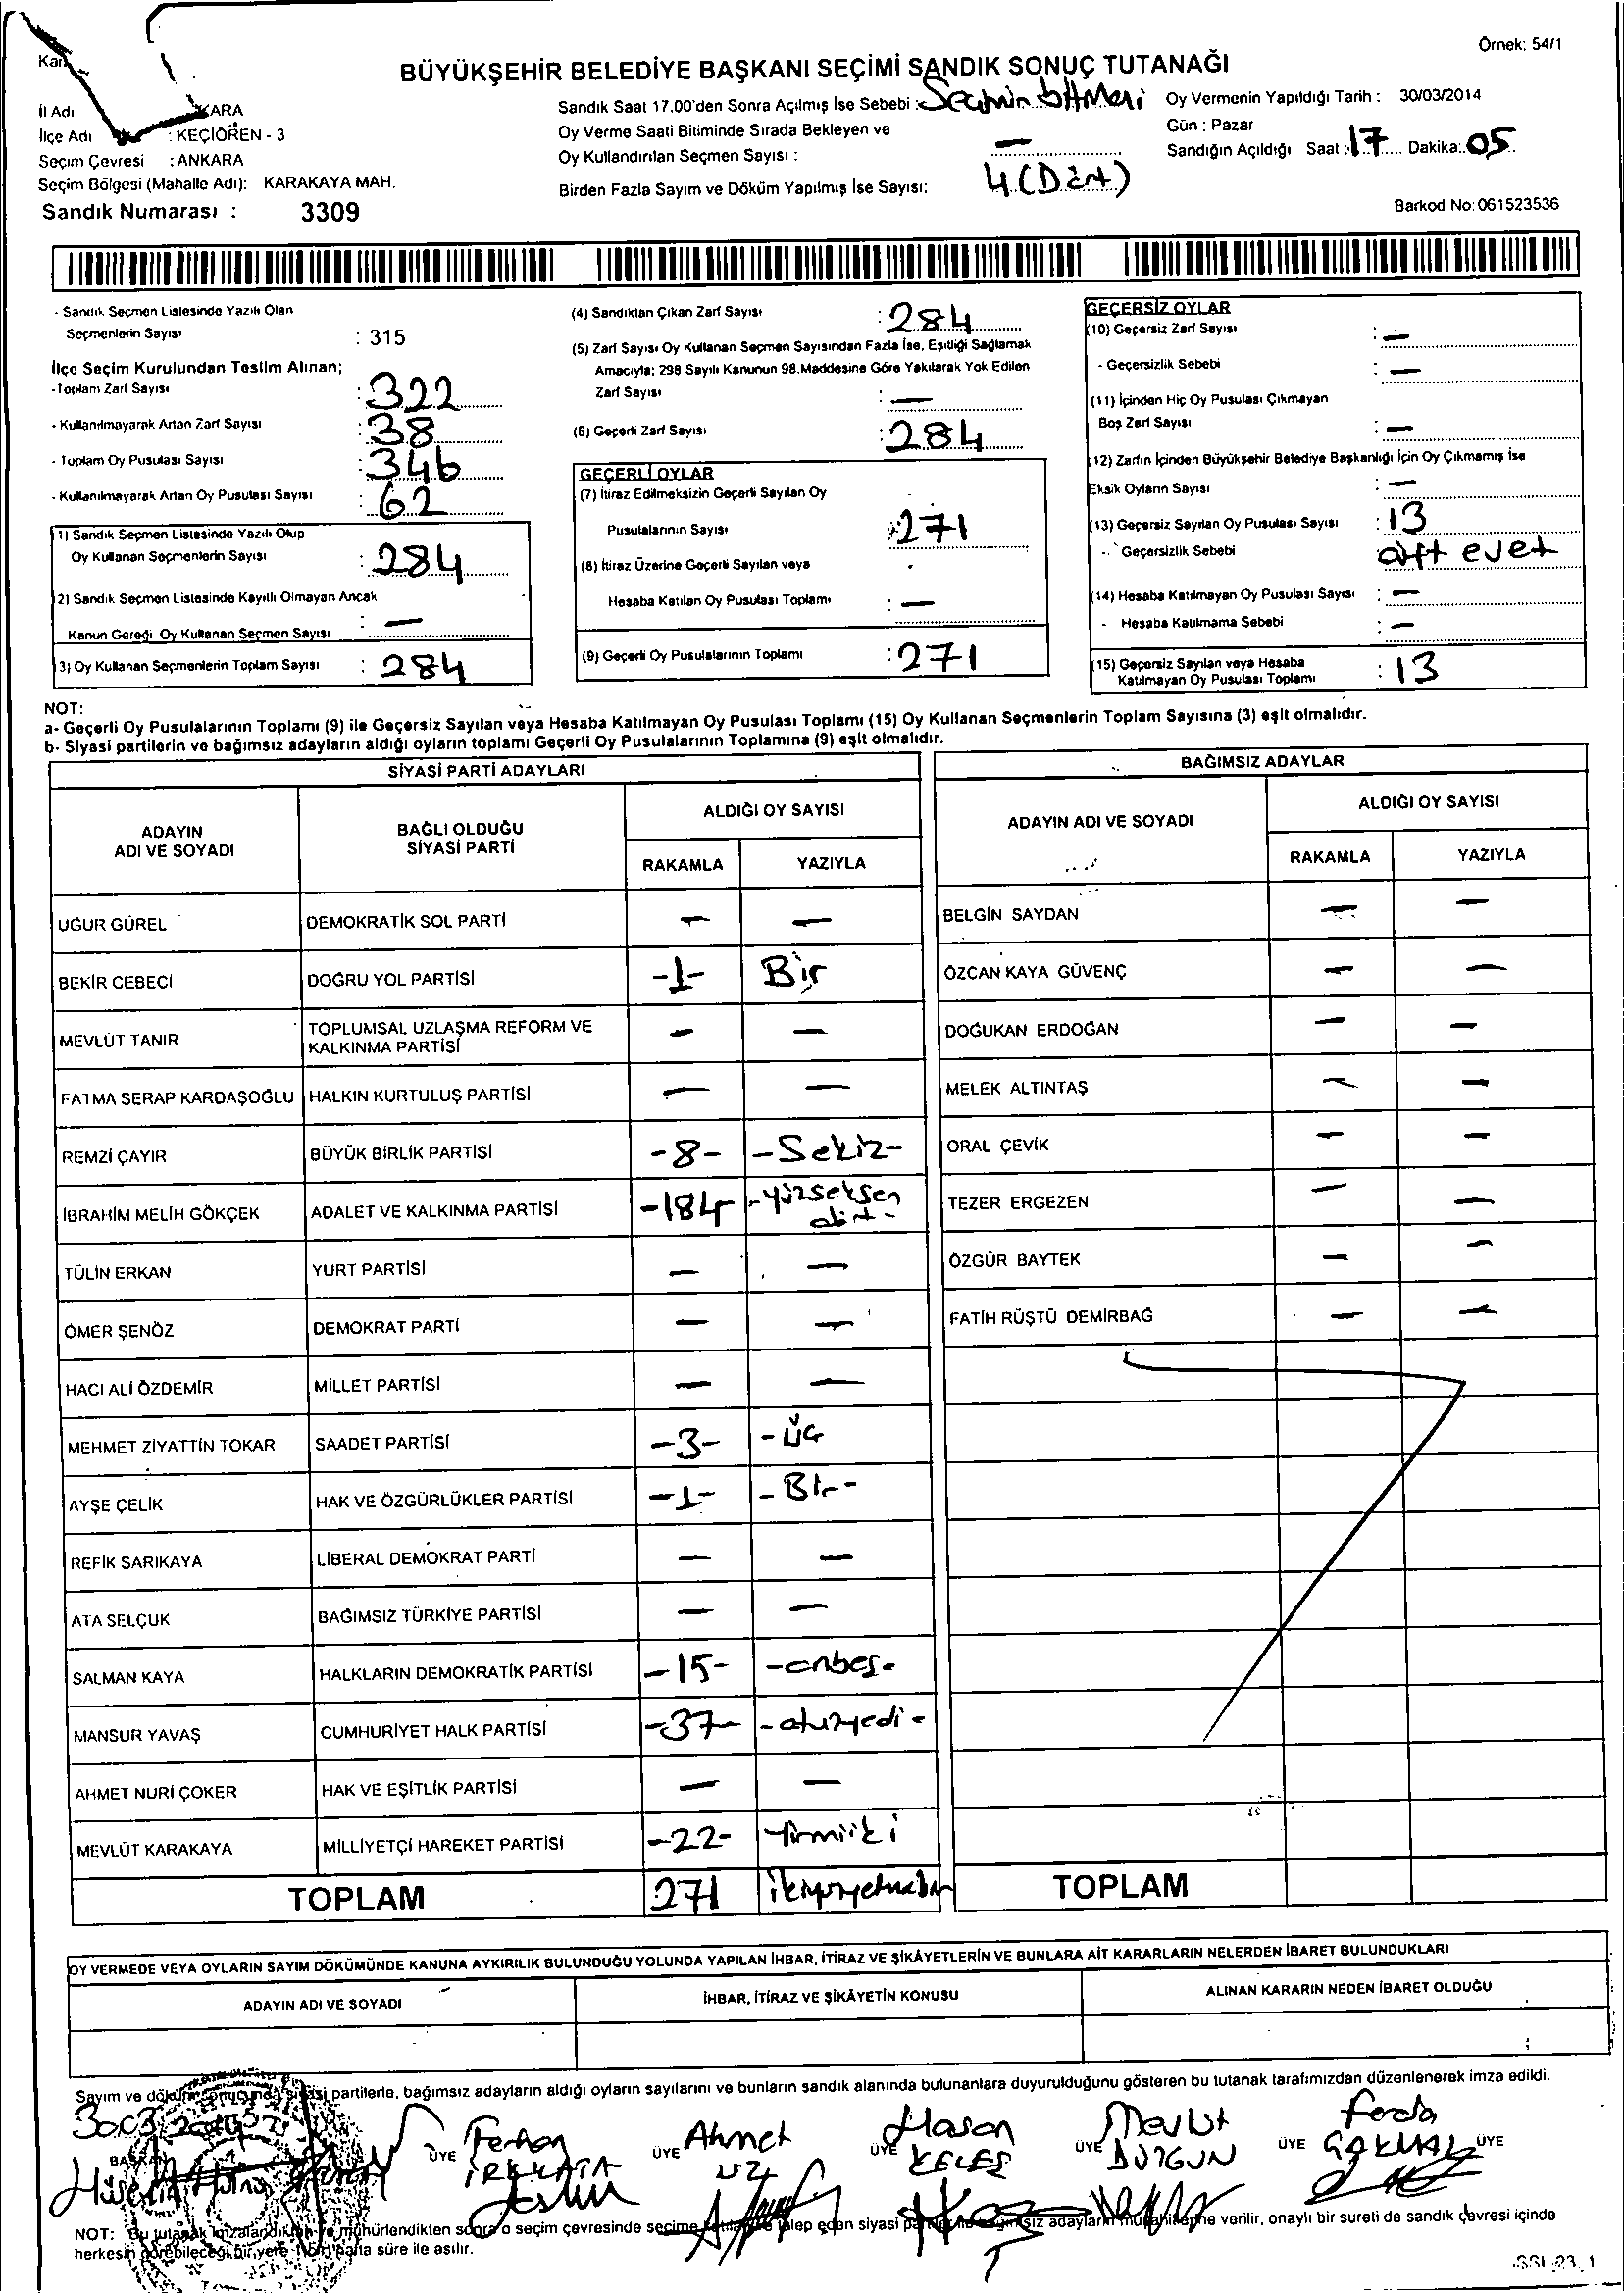 Örnek: 54/1
BÜYÜKŞEHİR BELEDİYE BAŞKANI SEÇİMİ SANDIK SONUÇ TUTANAĞI
İl Adı KARA
İlçe Adı : KEÇİÖREN - 3
Seçim Çevresi : ANKARA
Seçim Bölgesi (Mahalle Adı): KARAKAYA MAH.
Sandık Numarası : 3309
Sandık Saat 17.00'den Sonra Açılmış İse Sebebi : Seçimin bitmesi
Oy Verme Saati Bitiminde Sırada Bekleyen ve
Oy Kullandırılan Seçmen Sayısı : —
Birden Fazla Sayım ve Döküm Yapılmış İse Sayısı: 4 (Dört)
Oy Vermenin Yapıldığı Tarih : 30/03/2014
Gün : Pazar
Sandığın Açıldığı Saat : 17 Dakika: 05
Barkod No: 061523536
- Sandık Seçmen Listesinde Yazılı Olan
Seçmenlerin Sayısı : 315
İlçe Seçim Kurulundan Teslim Alınan;
- Toplam Zarf Sayısı : 322
- Kullanılmayarak Artan Zarf Sayısı : 38
- Toplam Oy Pusulası Sayısı : 346
- Kullanılmayarak Artan Oy Pusulası Sayısı : 62
1) Sandık Seçmen Listesinde Yazılı Olup
Oy Kullanan Seçmenlerin Sayısı : 284
2) Sandık Seçmen Listesinde Kayıtlı Olmayan Ancak
Kanun Gereği Oy Kullanan Seçmen Sayısı : —
3) Oy Kullanan Seçmenlerin Toplam Sayısı : 284
(4) Sandıktan Çıkan Zarf Sayısı : 284
(5) Zarf Sayısı Oy Kullanan Seçmen Sayısından Fazla İse, Eşitliği Sağlamak
Amacıyla; 298 Sayılı Kanunun 98.Maddesine Göre Yakılarak Yok Edilen
Zarf Sayısı : —
(6) Geçerli Zarf Sayısı : 284
GEÇERLİ OYLAR
(7) İtiraz Edilmeksizin Geçerli Sayılan Oy
Pusulalarının Sayısı : 271
(8) İtiraz Üzerine Geçerli Sayılan veya
Hesaba Katılan Oy Pusulası Toplamı : —
(9) Geçerli Oy Pusulalarının Toplamı : 271
GEÇERSİZ OYLAR
(10) Geçersiz Zarf Sayısı : —
- Geçersizlik Sebebi : —
(11) İçinden Hiç Oy Pusulası Çıkmayan
Boş Zarf Sayısı : —
(12) Zarfın İçinden Büyükşehir Belediye Başkanlığı İçin Oy Çıkmamış İse
Eksik Oyların Sayısı : —
(13) Geçersiz Sayılan Oy Pusulası Sayısı : 13
- Geçersizlik Sebebi çift evet
(14) Hesaba Katılmayan Oy Pusulası Sayısı : —
- Hesaba Katılmama Sebebi : —
(15) Geçersiz Sayılan veya Hesaba
Katılmayan Oy Pusulası Toplamı : 13
NOT:
a- Geçerli Oy Pusulalarının Toplamı (9) ile Geçersiz Sayılan veya Hesaba Katılmayan Oy Pusulası Toplamı (15) Oy Kullanan Seçmenlerin Toplam Sayısına (3) eşit olmalıdır.
b- Siyasi partilerin ve bağımsız adayların aldığı oyların toplamı Geçerli Oy Pusulalarının Toplamına (9) eşit olmalıdır.
SİYASİ PARTİ ADAYLARI
ADAYIN ADI VE SOYADI BAĞLI OLDUĞU SİYASİ PARTİ ALDIĞI OY SAYISI
RAKAMLA YAZIYLA
UĞUR GÜREL DEMOKRATİK SOL PARTİ — —
BEKİR CEBECİ DOĞRU YOL PARTİSİ -1- Bir
MEVLÜT TANIR TOPLUMSAL UZLAŞMA REFORM VE KALKINMA PARTİSİ — —
FATMA SERAP KARDAŞOĞLU HALKIN KURTULUŞ PARTİSİ — —
REMZİ ÇAYIR BÜYÜK BİRLİK PARTİSİ -8- -Sekiz-
İBRAHİM MELİH GÖKÇEK ADALET VE KALKINMA PARTİSİ -184- -yüzseksen dört-
TÜLİN ERKAN YURT PARTİSİ — —
ÖMER ŞENÖZ DEMOKRAT PARTİ — —
HACI ALİ ÖZDEMİR MİLLET PARTİSİ — —
MEHMET ZİYATTİN TOKAR SAADET PARTİSİ -3- -üç
AYŞE ÇELİK HAK VE ÖZGÜRLÜKLER PARTİSİ -1- -Bir-
REFİK SARIKAYA LİBERAL DEMOKRAT PARTİ — —
ATA SELÇUK BAĞIMSIZ TÜRKİYE PARTİSİ — —
SALMAN KAYA HALKLARIN DEMOKRATİK PARTİSİ -15- -onbeş-
MANSUR YAVAŞ CUMHURİYET HALK PARTİSİ -37- -otuzyedi-
AHMET NURİ ÇOKER HAK VE EŞİTLİK PARTİSİ — —
MEVLÜT KARAKAYA MİLLİYETÇİ HAREKET PARTİSİ -22- -Yirmiiki
TOPLAM 271 ikiyüzyetmişbir
BAĞIMSIZ ADAYLAR
ADAYIN ADI VE SOYADI ALDIĞI OY SAYISI
RAKAMLA YAZIYLA
BELGİN SAYDAN — —
ÖZCAN KAYA GÜVENÇ — —
DOĞUKAN ERDOĞAN — —
MELEK ALTINTAŞ — —
ORAL ÇEVİK — —
TEZER ERGEZEN — —
ÖZGÜR BAYTEK — —
FATİH RÜŞTÜ DEMİRBAĞ — —
TOPLAM
OY VERMEDE VEYA OYLARIN SAYIM DÖKÜMÜNDE KANUNA AYKIRILIK BULUNDUĞU YOLUNDA YAPILAN İHBAR, İTİRAZ VE ŞİKÂYETLERİN VE BUNLARA AİT KARARLARIN NELERDEN İBARET BULUNDUKLARI
ADAYIN ADI VE SOYADI İHBAR, İTİRAZ VE ŞİKÂYETİN KONUSU ALINAN KARARIN NEDEN İBARET OLDUĞU
Sayım ve döküm sonucunda siyasi partilerle, bağımsız adayların aldığı oyların sayılarını ve bunların sandık alanında bulunanlara duyurulduğunu gösteren bu tutanak tarafımızdan düzenlenerek imza edildi.
BAŞKAN ÜYE ÜYE Ahmet UZ ÜYE Hasan KELEŞ ÜYE Mevlüt DURGUN ÜYE ÜYE
NOT: Bu tutanak imzalandıktan ve mühürlendikten sonra o seçim çevresinde seçime talep eden siyasi verilir, onaylı bir sureti de sandık çevresi içinde
herkesin görebileceği bir yere hafta süre ile asılır.